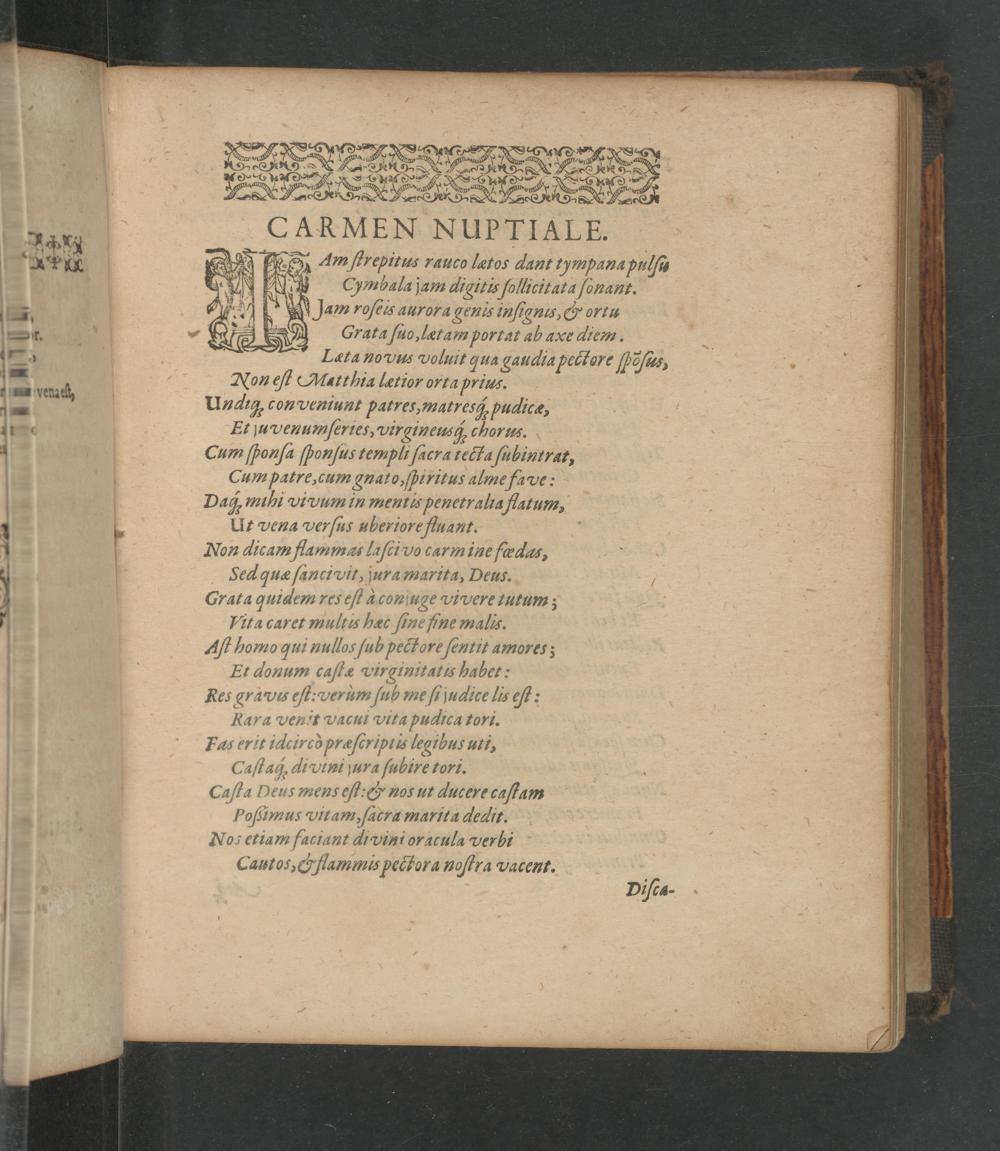 CARMEN NUPTIALE.
IAm strepitus rauco lætos dant tympana pulsu
Cymbala jam digitis sollicitata sonant.
Jam roseis aurora genis insignis, & ortu
Grata suo, lætam portat ab axe diem.
Læta novus voluit qua gaudia pectore spōsus,
Non est Matthia lætior orta prius.
Undiq; conveniunt patres, matresq́; pudicæ,
Et juvenum series, virgineusq́; chorus.
Cum sponsa sponsus templi sacra tecta subintrat,
Cum patre, cum gnato, spiritus alme fave:
Daq́; mihi vivum in mentis penetralia flatum,
Ut vena versus uberiore fluant.
Non dicam flammas lascivo carmine fœdas,
Sed quæ sancivit, jura marita, Deus.
Grata quidem res est à conjuge vivere tutum;
Vita caret multis hæc sine fine malis.
Ast homo qui nullos sub pectore sentit amores;
Et donum castæ virginitatis habet:
Res gravis est: verùm sub me si judice lis est:
Rara venit vacui vita pudica tori.
Fas erit idcircò præscriptis legibus uti,
Castaq́; divini jura subire tori.
Casta Deus mens est: & nos ut ducere castam
Possimus vitam, sacra marita dedit.
Nos etiam faciant divini oracula verbi
Cautos, & flammis pectora nostra vacent.
Disca-
vena est,